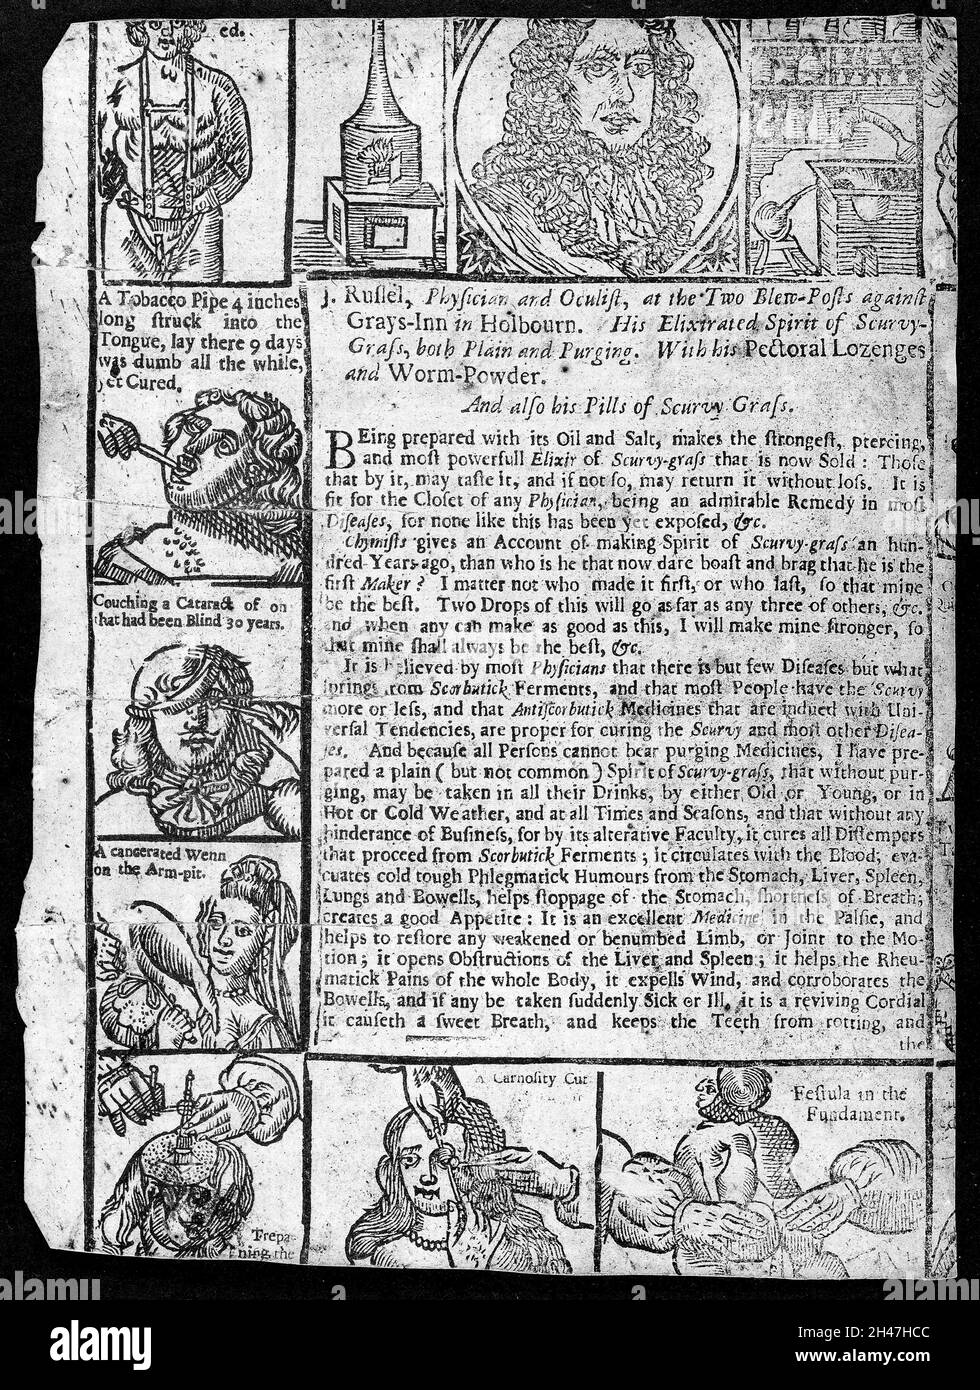 ed.
A Tobacco Pipe 4 inches
long ſtruck into the
Tongue, lay there 9 days
was dumb all the while,
yet Cured.
Couching a Cataract of on
that had been Blind 30 years.
A cancerated Wenn
on the Arm-pit.
J. Ruſſel, Phyſician and Oculiſt, at the Two Blew-Poſts againſt
Grays-Inn in Holbourn. His Elixirated Spirit of Scurvy-
Graſs, both Plain and Purging. With his Pectoral Lozenges
and Worm-Powder.
And alſo his Pills of Scurvy Graſs.
BEing prepared with its Oil and Salt, makes the ſtrongeſt, piercing,
and moſt powerfull Elixir of Scurvy-graſs that is now Sold: Thoſe
that by it, may taſte it, and if not ſo, may return it without loſs. It is
fit for the Cloſet of any Phyſician, being an admirable Remedy in moſt
Diſeaſes, for none like this has been yet expoſed, &c.
Chymiſts gives an Account of making Spirit of Scurvy-graſs an hun-
dred Years ago, than who is he that now dare boaſt and brag that he is the
firſt Maker? I matter not who made it firſt, or who laſt, ſo that mine
be the beſt. Two Drops of this will go as far as any three of others, &c.
and when any can make as good as this, I will make mine ſtronger, ſo
that mine ſhall always be the beſt, &c.
It is believed by moſt Phyſicians that there is but few Diſeaſes but what
ſprings from Scorbutick Ferments, and that moſt People have the Scurvy
more or leſs, and that Antiſcorbutick Medicines that are indued with Uni-
verſal Tendencies, are proper for curing the Scurvy and moſt other Diſea-
ſes. And becauſe all Perſons cannot bear purging Medicines, I have pre-
pared a plain (but not common) Spirit of Scurvy-graſs, that without pur-
ging, may be taken in all their Drinks, by either Old or Young, or in
Hot or Cold Weather, and at all Times and Seaſons, and that without any
hinderance of Buſineſs, for by its alterative Faculty, it cures all Diſtempers
that proceed from Scorbutick Ferments; it circulates with the Blood; eva-
cuates cold tough Phlegmatick Humours from the Stomach, Liver, Spleen,
Lungs and Bowells, helps ſtoppage of the Stomach, ſhortneſs of Breath;
creates a good Appetite: It is an excellent Medicine in the Palſie, and
helps to reſtore any weakened or benumbed Limb, or Joint to the Mo-
tion; it opens Obſtructions of the Liver and Spleen; it helps the Rheu-
matick Pains of the whole Body, it expells Wind, and corroborates the
Bowells, and if any be taken ſuddenly Sick or Ill, it is a reviving Cordial
it cauſeth a ſweet Breath, and keeps the Teeth from rotting, and
the
Trepa-
ning the
A Carnoſity Cut
Feſtula in the
Fundament.
alamy
Image ID: 2H47HCC
www.alamy.com